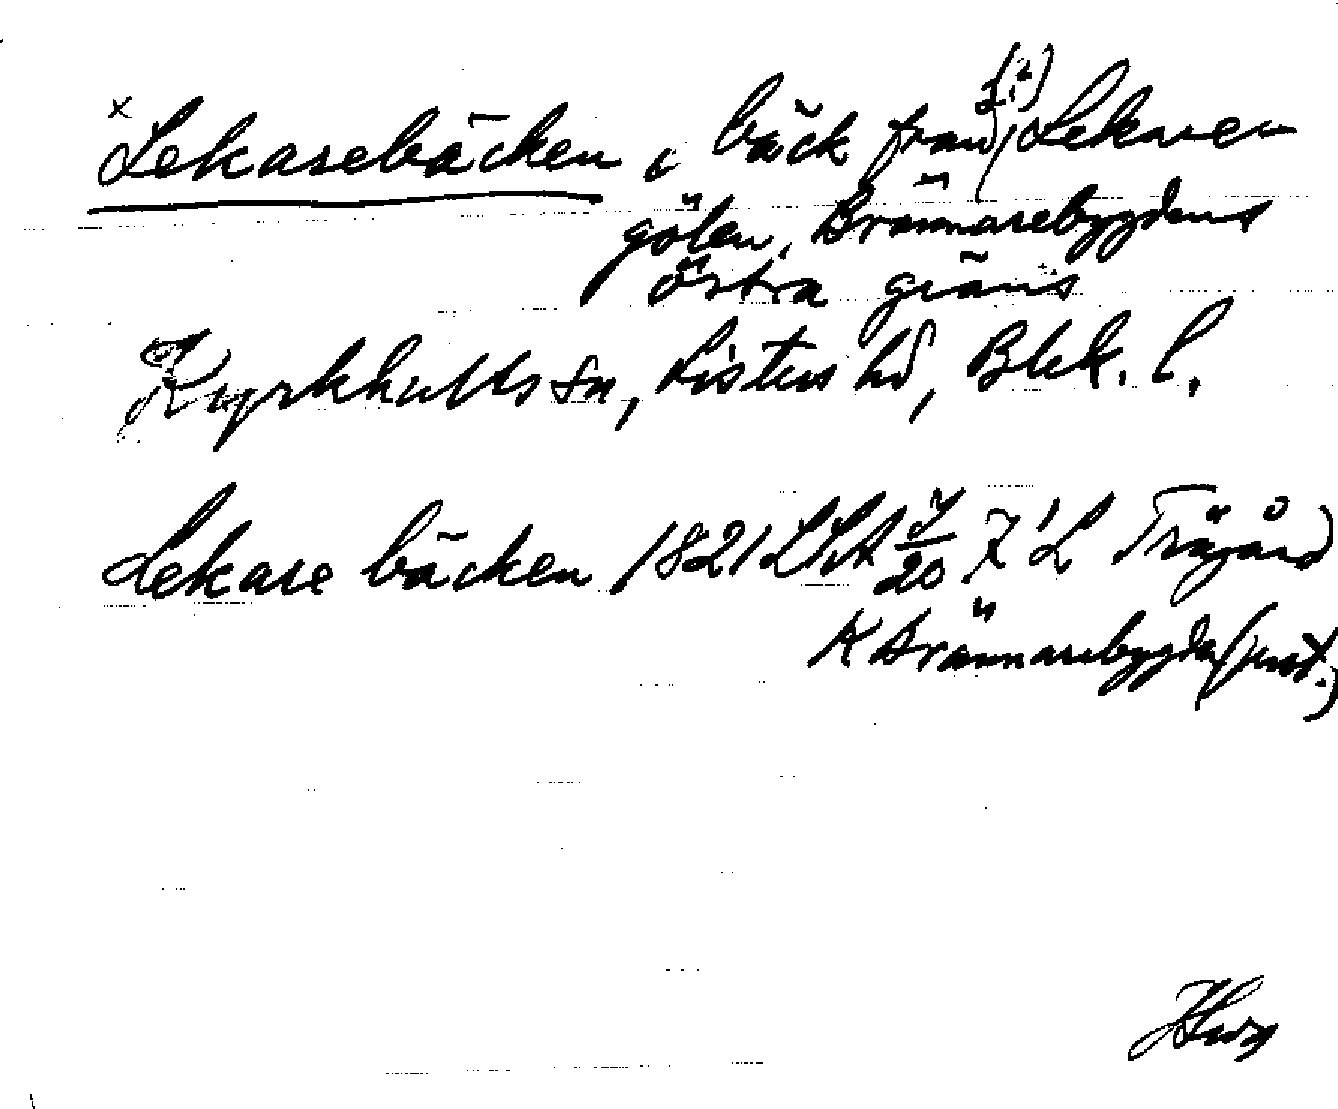 x Lekasebäcken, bäck från Lekare
gölen, Brännarebygdens
östra gräns
Kyrkhults sn, Listers hd, Blek. l.
Lekare bäcken 1821 LSA 20 L Trägård
K Brännarebygden